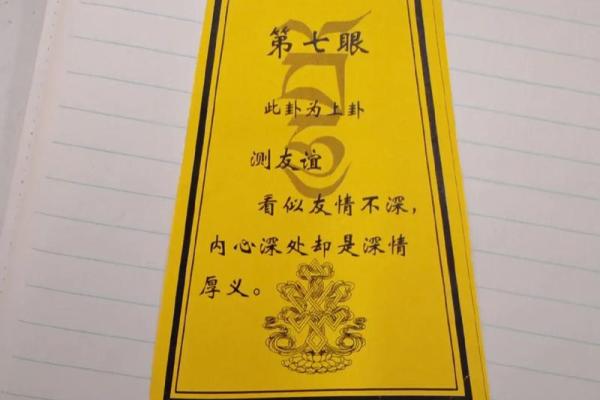 第七眼
此卦为上卦
测友谊
看似友情不深，
内心深处却是深情
厚义。